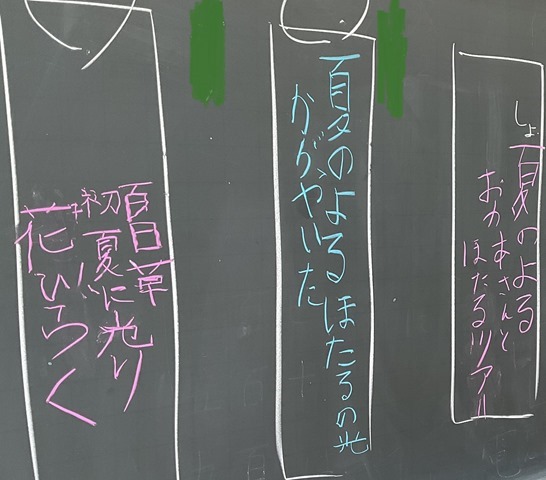 しょ夏のよる
おかあさんと
ほたるツアー
夏のよるほたるの光
かがやいた
百日草
初夏に光り
花ひらく